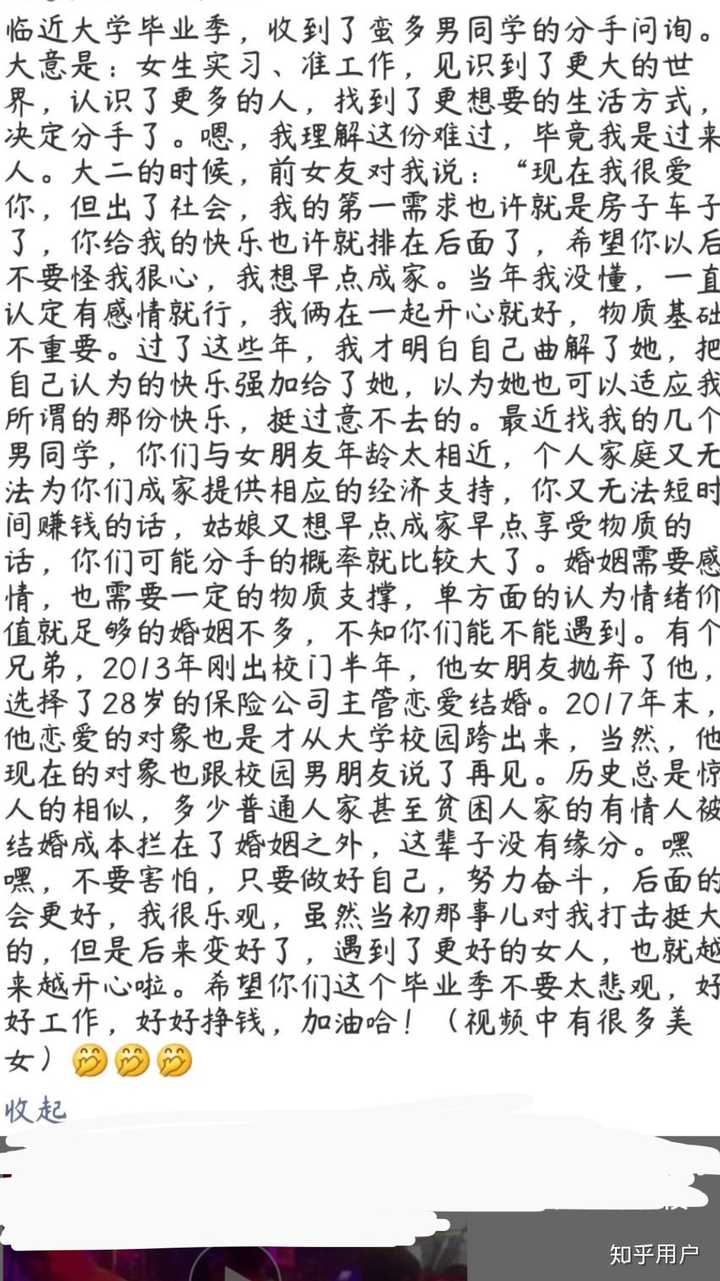 临近大学毕业季，收到了蛮多男同学的分手问询。
大意是：女生实习、准工作，见识到了更大的世
界，认识了更多的人，找到了更想要的生活方式，
决定分手了。嗯，我理解这份难过，毕竟我是过来
人。大二的时候，前女友对我说：“现在我很爱
你，但出了社会，我的第一需求也许就是房子车子
了，你给我的快乐也许就排在后面了，希望你以后
不要怪我狠心，我想早点成家。当年我没懂，一直
认定有感情就行，我俩在一起开心就好，物质基础
不重要。过了这些年，我才明白自己曲解了她，把
自己认为的快乐强加给了她，以为她也可以适应我
所谓的那份快乐，挺过意不去的。最近找我的几个
男同学，你们与女朋友年龄太相近，个人家庭又无
法为你们成家提供相应的经济支持，你又无法短时
间赚钱的话，姑娘又想早点成家早点享受物质的
话，你们可能分手的概率就比较大了。婚姻需要感
情，也需要一定的物质支撑，单方面的认为情绪价
值就足够的婚姻不多，不知你们能不能遇到。有个
兄弟，2013年刚出校门半年，他女朋友抛弃了他，
选择了28岁的保险公司主管恋爱结婚。2017年末，
他恋爱的对象也是才从大学校园跨出来，当然，他
现在的对象也跟校园男朋友说了再见。历史总是惊
人的相似，多少普通人家甚至贫困人家的有情人被
结婚成本拦在了婚姻之外，这辈子没有缘分。嘿
嘿，不要害怕，只要做好自己，努力奋斗，后面的
会更好，我很乐观，虽然当初那事儿对我打击挺大
的，但是后来变好了，遇到了更好的女人，也就越
来越开心啦。希望你们这个毕业季不要太悲观，好
好工作，好好挣钱，加油哈！（视频中有很多美
女）🤭🤭🤭
收起
知乎用户